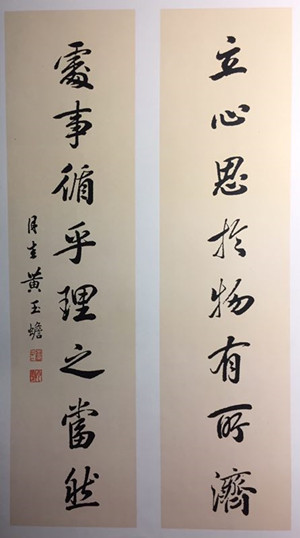 立心思於物有所濟
處事循乎理之當然
月圭黃玉蟾